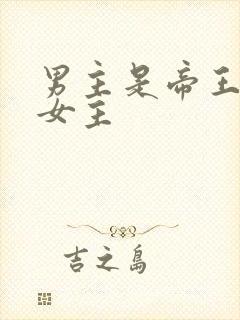 男主是帝王
女主
吉之岛